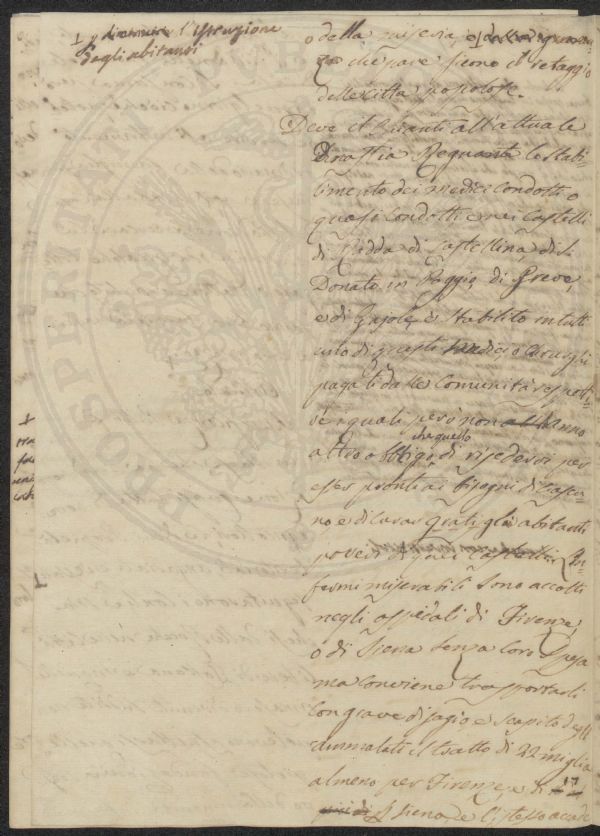 l'Istruzione
degli abitanti
o della miseria, e
che pare sieno il retaggio
delle città popolose.
Deve il Chianti all'attuale
Dinastia Regnante lo stabi-
limento dei medici condotti o
quasi condotti e nei Castelli
di Radda di Castellina, di S.
Donato in Poggio, di Greve,
e di Gajole, è stabilito in tutti
uno di questi medici, o chirurghi
pagati dalle Comunità rispetti-
ve i quali però non hanno
altro obbligo che quello di risedervi per
esser pronti ai bisogni di ciascu-
no e di curar gratis gli abitanti
poveri di quei Castelli. Gl'In-
fermi miserabili sono accolti
negli ospedali di Firenze,
o di Siena senza loro spesa
ma conviene trasportarli
con grave disagio e scapito degli
ammalati il tratto di 22 miglia
almeno per Firenze, e di 17
Siena, e l'istesso accade
PROSPERITA